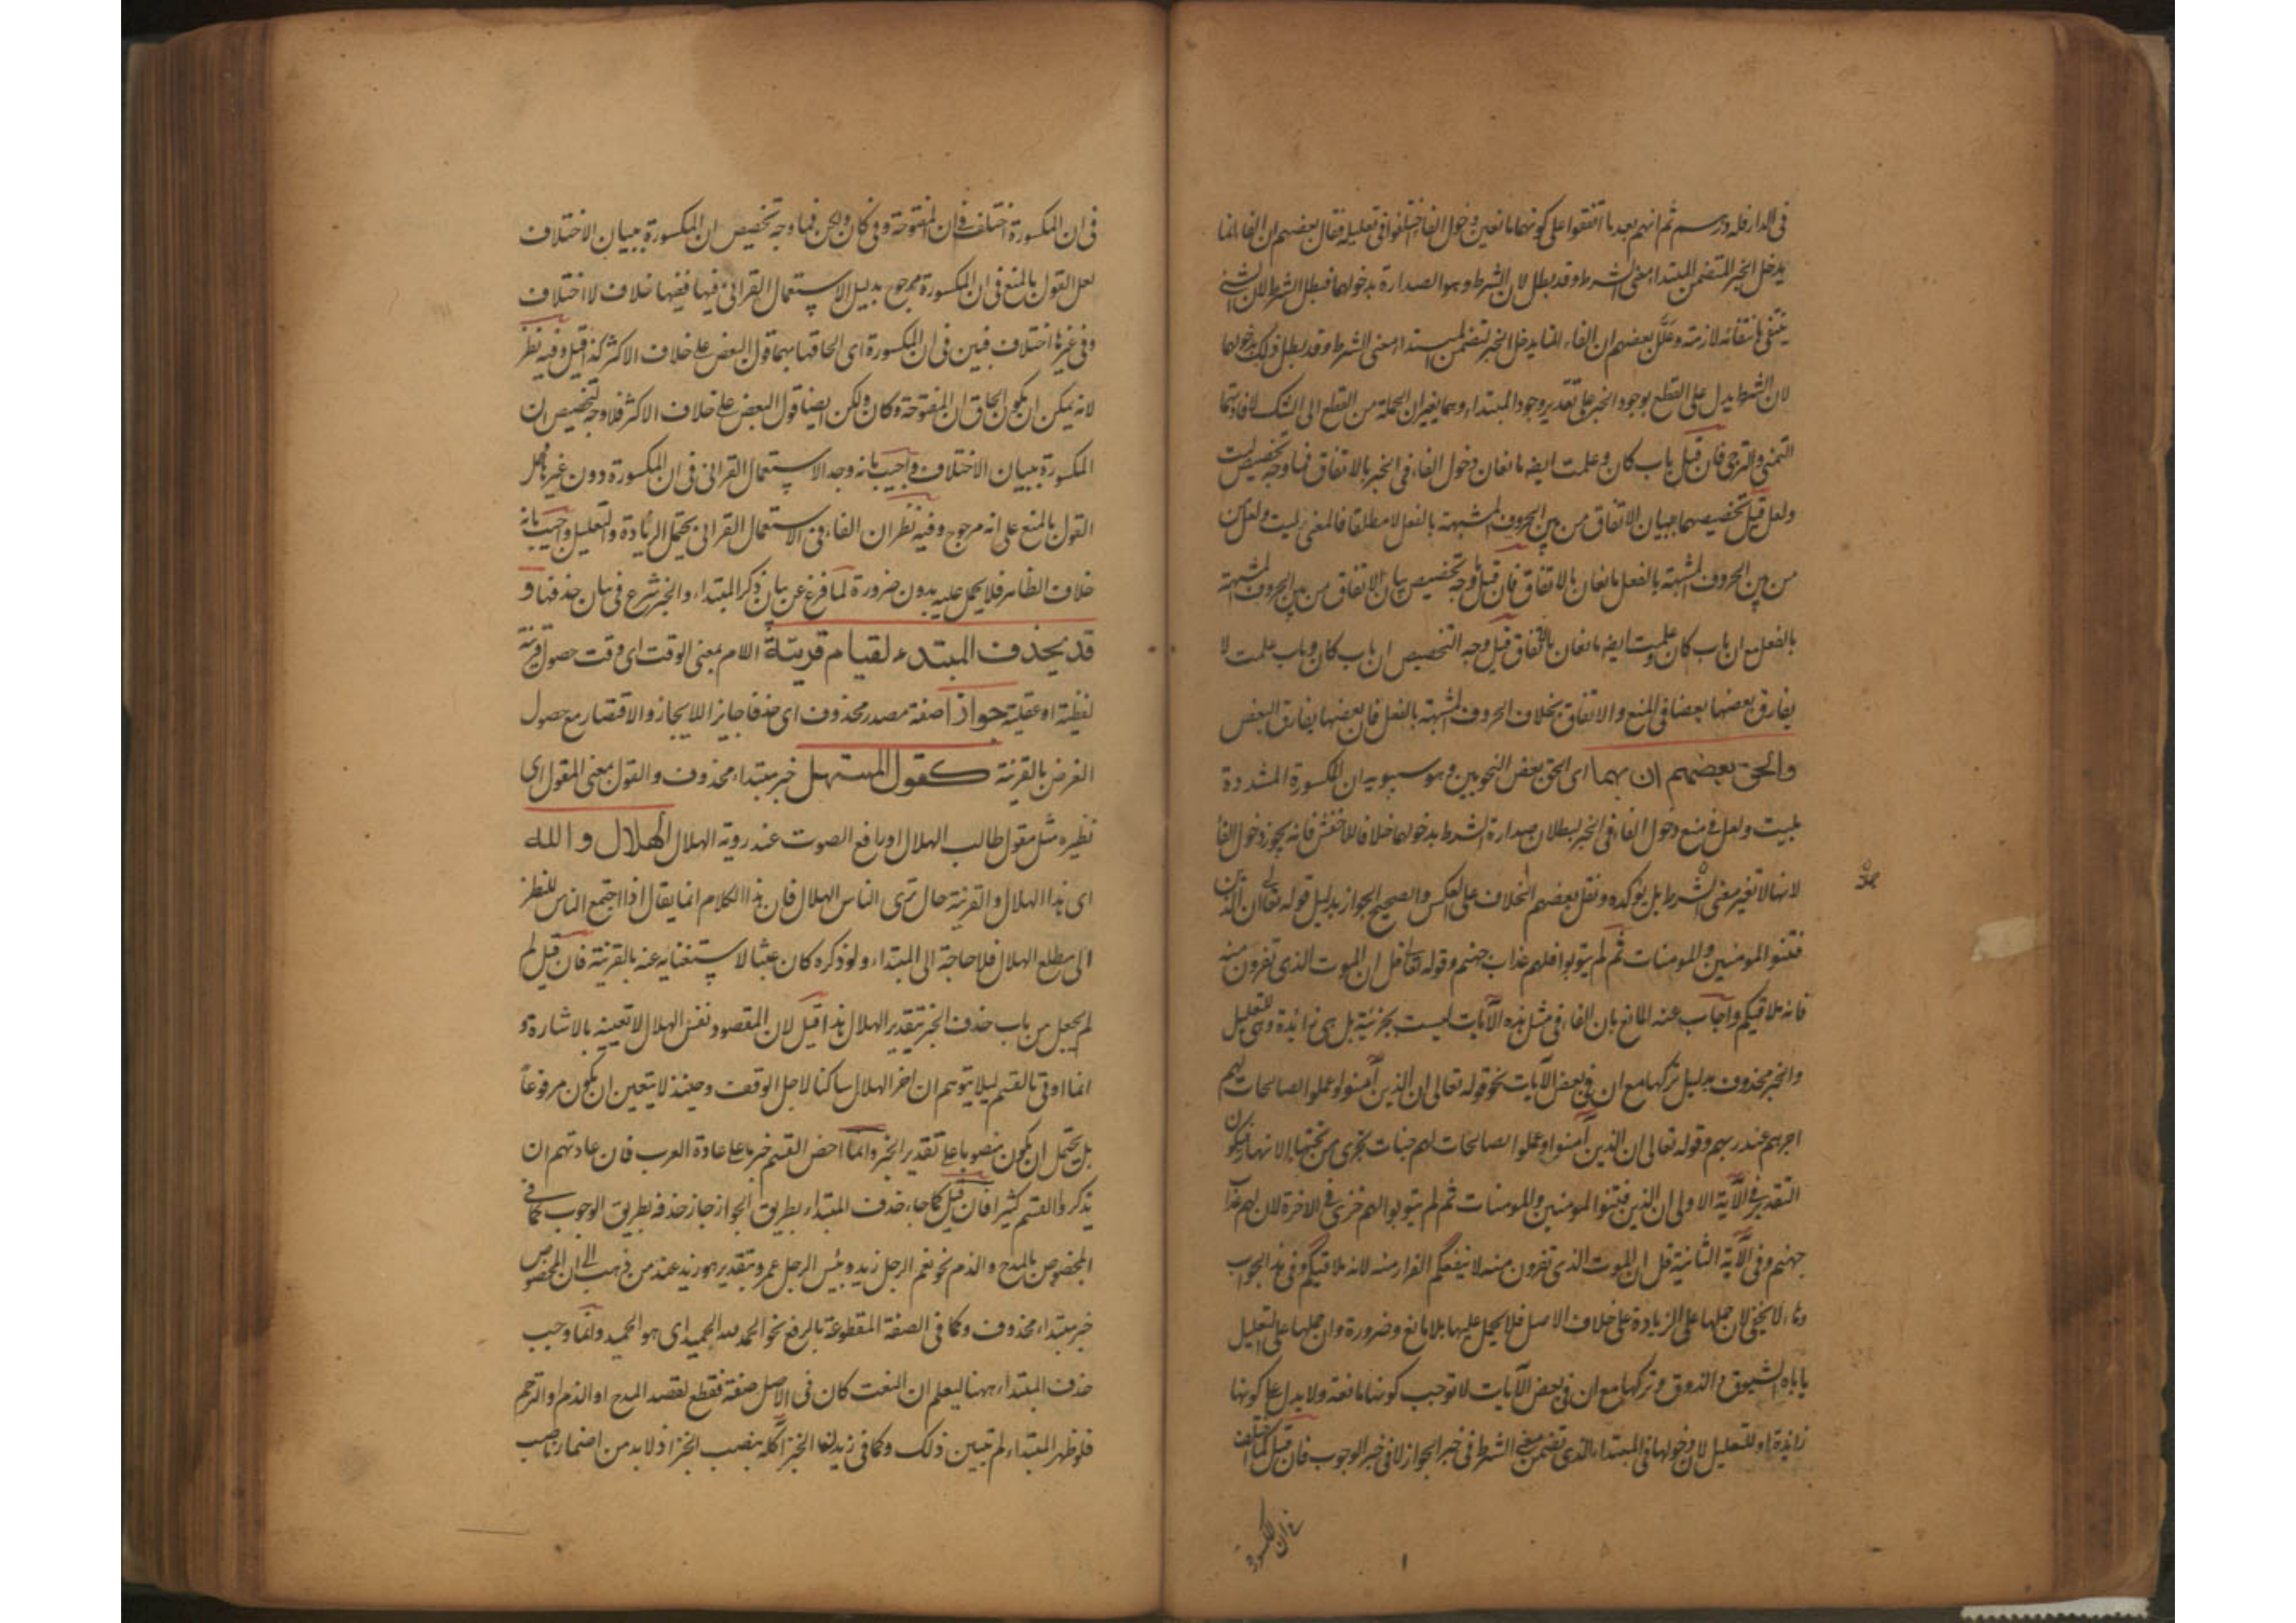 فى الدار فله درهم ثم انهم بعد ما اتفقوا على كونهما مانعين دخول الفاء اختلفوا فى تعليله فقال بعضهم ان الفاء انما
يدخل الخبر المتضمن المبتداء معنى الشرط وقد بطل لان الشرط وهو الصدارة بدخولهما فبطل الشرط لان الشئ
ينتفى بانتفائه لازمه وعلل بعضهم ان الفاء انما يدخل الخبر لتضمن المبتداء معنى الشرط وقد بطل ذلك بدخولهما
لان الشرط يدل على القطع بوجود الخبر على تقدير وجود المبتداء وهما يغيران الجملة من القطع الى الشك لافادتهما
التمنى والترجى فان قيل باب كان وعلمت ايضا مانعان دخول الفاء فى الخبر بالاتفاق فما وجه تخصيص ليت
ولعل قيل تخصيصهما ببيان الاتفاق من بين الحروف المشبهة بالفعل لا مطلقا فالمعنى ليت ولعل من
من بين الحروف المشبهة بالفعل مانعان بالاتفاق فان قيل ما وجه تخصيص بيان الاتفاق من بين الحروف المشبهة
بالفعل مع ان باب كان وعلمت ايضا مانعان بالاتفاق قيل وجه التخصيص ان باب كان وباب علمت لا
يفارق بعضها بعضا فى المنع والاتفاق بخلاف الحروف المشبهة بالفعل فان بعضها يفارق البعض
والحق بعضهم ان بهما اى الحق بعض النحويين وهو سيبويه ان المكسورة المشددة
بليت ولعل فى منع دخول الفاء فى الخبر لبطلان صدارة الشرط بدخولها خلافا للاخفش فانه يجوز دخول الفاء
لانها لا تغير معنى الشرط بل يؤكده ونقل بعضهم الخلاف على العكس والصحيح الجواز بدليل قوله تعالى ان الذين
فتنوا المومنين والمومنات ثم لم يتوبوا فلهم عذاب جهنم وقوله تعالى قل ان الموت الذى تفرون منه
فانه ملاقيكم واجاب عنه المانع بان الفاء فى مثل هذه الآيات ليست بجزئية بل هى زائدة وهى للتعليل
والخبر محذوف بدليل تركها مع ان فى بعض الآيات نحو قوله تعالى ان الذين آمنوا وعملوا الصالحات لهم
اجرهم عند ربهم وقوله تعالى ان الذين آمنوا وعملوا الصالحات لهم جنات تجرى من تحتها الانهار فيكون
التقدير فى الآية الاولى ان الذين فتنوا المومنين والمومنات ثم لم يتوبوا لهم خزى فى الاخرة لان لهم عذاب
جهنم وفى الآية الثانية قل ان الموت الذى تفرون منه لا ينفعكم الفرار منه لانه ملاقيكم وفى هذا الجواب
لا يخفى لان حملها على الزيادة على خلاف الاصل فلا يحمل عليها بلا مانع وضرورة وان حملها على التعليل
ياباه والذوق وتركها مع ان فى بعض الآيات لا توجب كونها مانعة ولا يدل على كونها
زائدة او للتعليل لان دخولها فى المبتداء الذى تضمن معنى الشرط فى خبر الجواز لا فى خبر الوجوب فان قيل كما اختلف
فى ان المكسورة
فى ان المكسورة اختلف فى ان المفتوحة وفى كان ولكن فما وجه تخصيص ان المكسورة ببيان الاختلاف
لعل القول بالمنع فى ان المكسورة مرجوح بدليل الاستعمال القرانى فيها ففيها خلاف لا اختلاف
وفى غيرها اختلاف فبين فى ان المكسورة اى الحاقها بهما قول البعض على خلاف الاكثر كذا قيل وفيه نظر
لانه يمكن ان يكون الحاق ان المفتوحة وكان ولكن ايضا قول البعض على خلاف الاكثر فلا وجه لتخصيص ان
المكسورة ببيان الاختلاف واجيب بانه وجد الاستعمال القرانى فى ان المكسورة دون غيرها
القول بالمنع على انه مرجوح وفيه نظر ان الفاء فى الاستعمال القرانى يحتمل الزيادة والتعليل واجيب بانه
خلاف الظاهر فلا يحمل عليه بدون ضرورة لما فرغ عن بيان ذكر المبتداء والخبر شرع فى بيان حذفهما و
قد يحذف المبتدء لقيام قرينة اللام بمعنى الوقت اى وقت حصول قرينة
لفظية او عقلية جوازا صفة مصدر محذوف اى حذفا جايزا للايجاز والاقتصار مع حصول
الغرض بالقرينة كقول المستهل خبر مبتداء محذوف والقول بمعنى المقول اى
نظيره مثل مقول طالب الهلال او رافع الصوت عند روية الهلال الهلال والله
اى هذا الهلال والقرينة حال ترى الناس الهلال فان هذا الكلام انما يقال اذا اجتمع الناس للنظر
الى مطلع الهلال فلا حاجة الى المبتداء ولو ذكره كان عبثا لاستغنايه عنه بالقرينة فان قيل لم
لم يجعل من باب حذف الخبر بتقدير الهلال هذا قيل لان المقصود نفس الهلال لا تعيينه بالاشارة و
انما اوتى بالقسم ليلا يتوهم ان اخر الهلال ساكنا لاجل الوقف وحينئذ لا يتعين ان يكون مرفوعا
بل يحتمل ان يكون منصوبا على تقدير الخبر وانما القسم خبرها على عادة العرب فان عادتهم ان
يذكروا القسم كثيرا فان قيل كما جاء حذف المبتداء بطريق الجواز جاز حذفه بطريق الوجوب كما فى
المخصوص بالمدح والذم نحو نعم الرجل زيد وبئس الرجل عمرو بتقدير هو زيد عند من ذهب الى ان المخصوص
خبر مبتداء محذوف وكما فى الصفة المقطوعة بالرفع نحو الحمد لله الحميد اى هو الحميد وانما وجب
حذف المبتداء ههنا ليعلم ان النعت كان فى الاصل صفة فقطع لقصد المدح او الذم او الترحم
فلو ظهر المبتداء لم تبين ذلك وكما فى زيد الخبز اكله بنصب الخبز اذ لا بد من اضمار ناصب